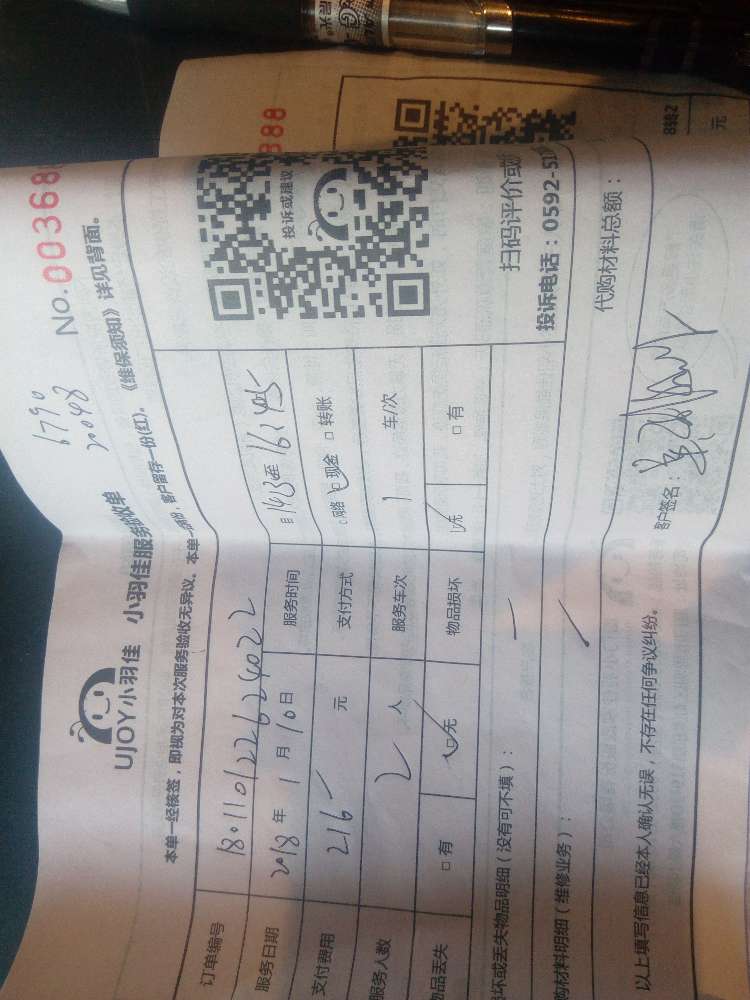 UJOY小羽佳 小羽佳服务验收单
1790
20048
No.003688
本单一经核签，即视为对本次服务验收无异议。本单一式两份，客户留存一份(红)。《维保须知》详见背面。
订单编号 180110122624022
服务日期 2018 年 1 月 10 日 服务时间 自 至
支付费用 216 元 支付方式 □网络 □现金 □转账
服务人数 2 人 服务车次 1 车/次
品丢失 □有 □无 物品损坏 □无 □有
投诉或建议
扫码评价或
投诉电话：0592-51
坏或丢失物品明细（没有可不填）：
购材料明细（维修业务）：
代购材料总额：
以上填写信息已经本人确认无误，不存在任何争议纠纷。
客户签名：
888
元